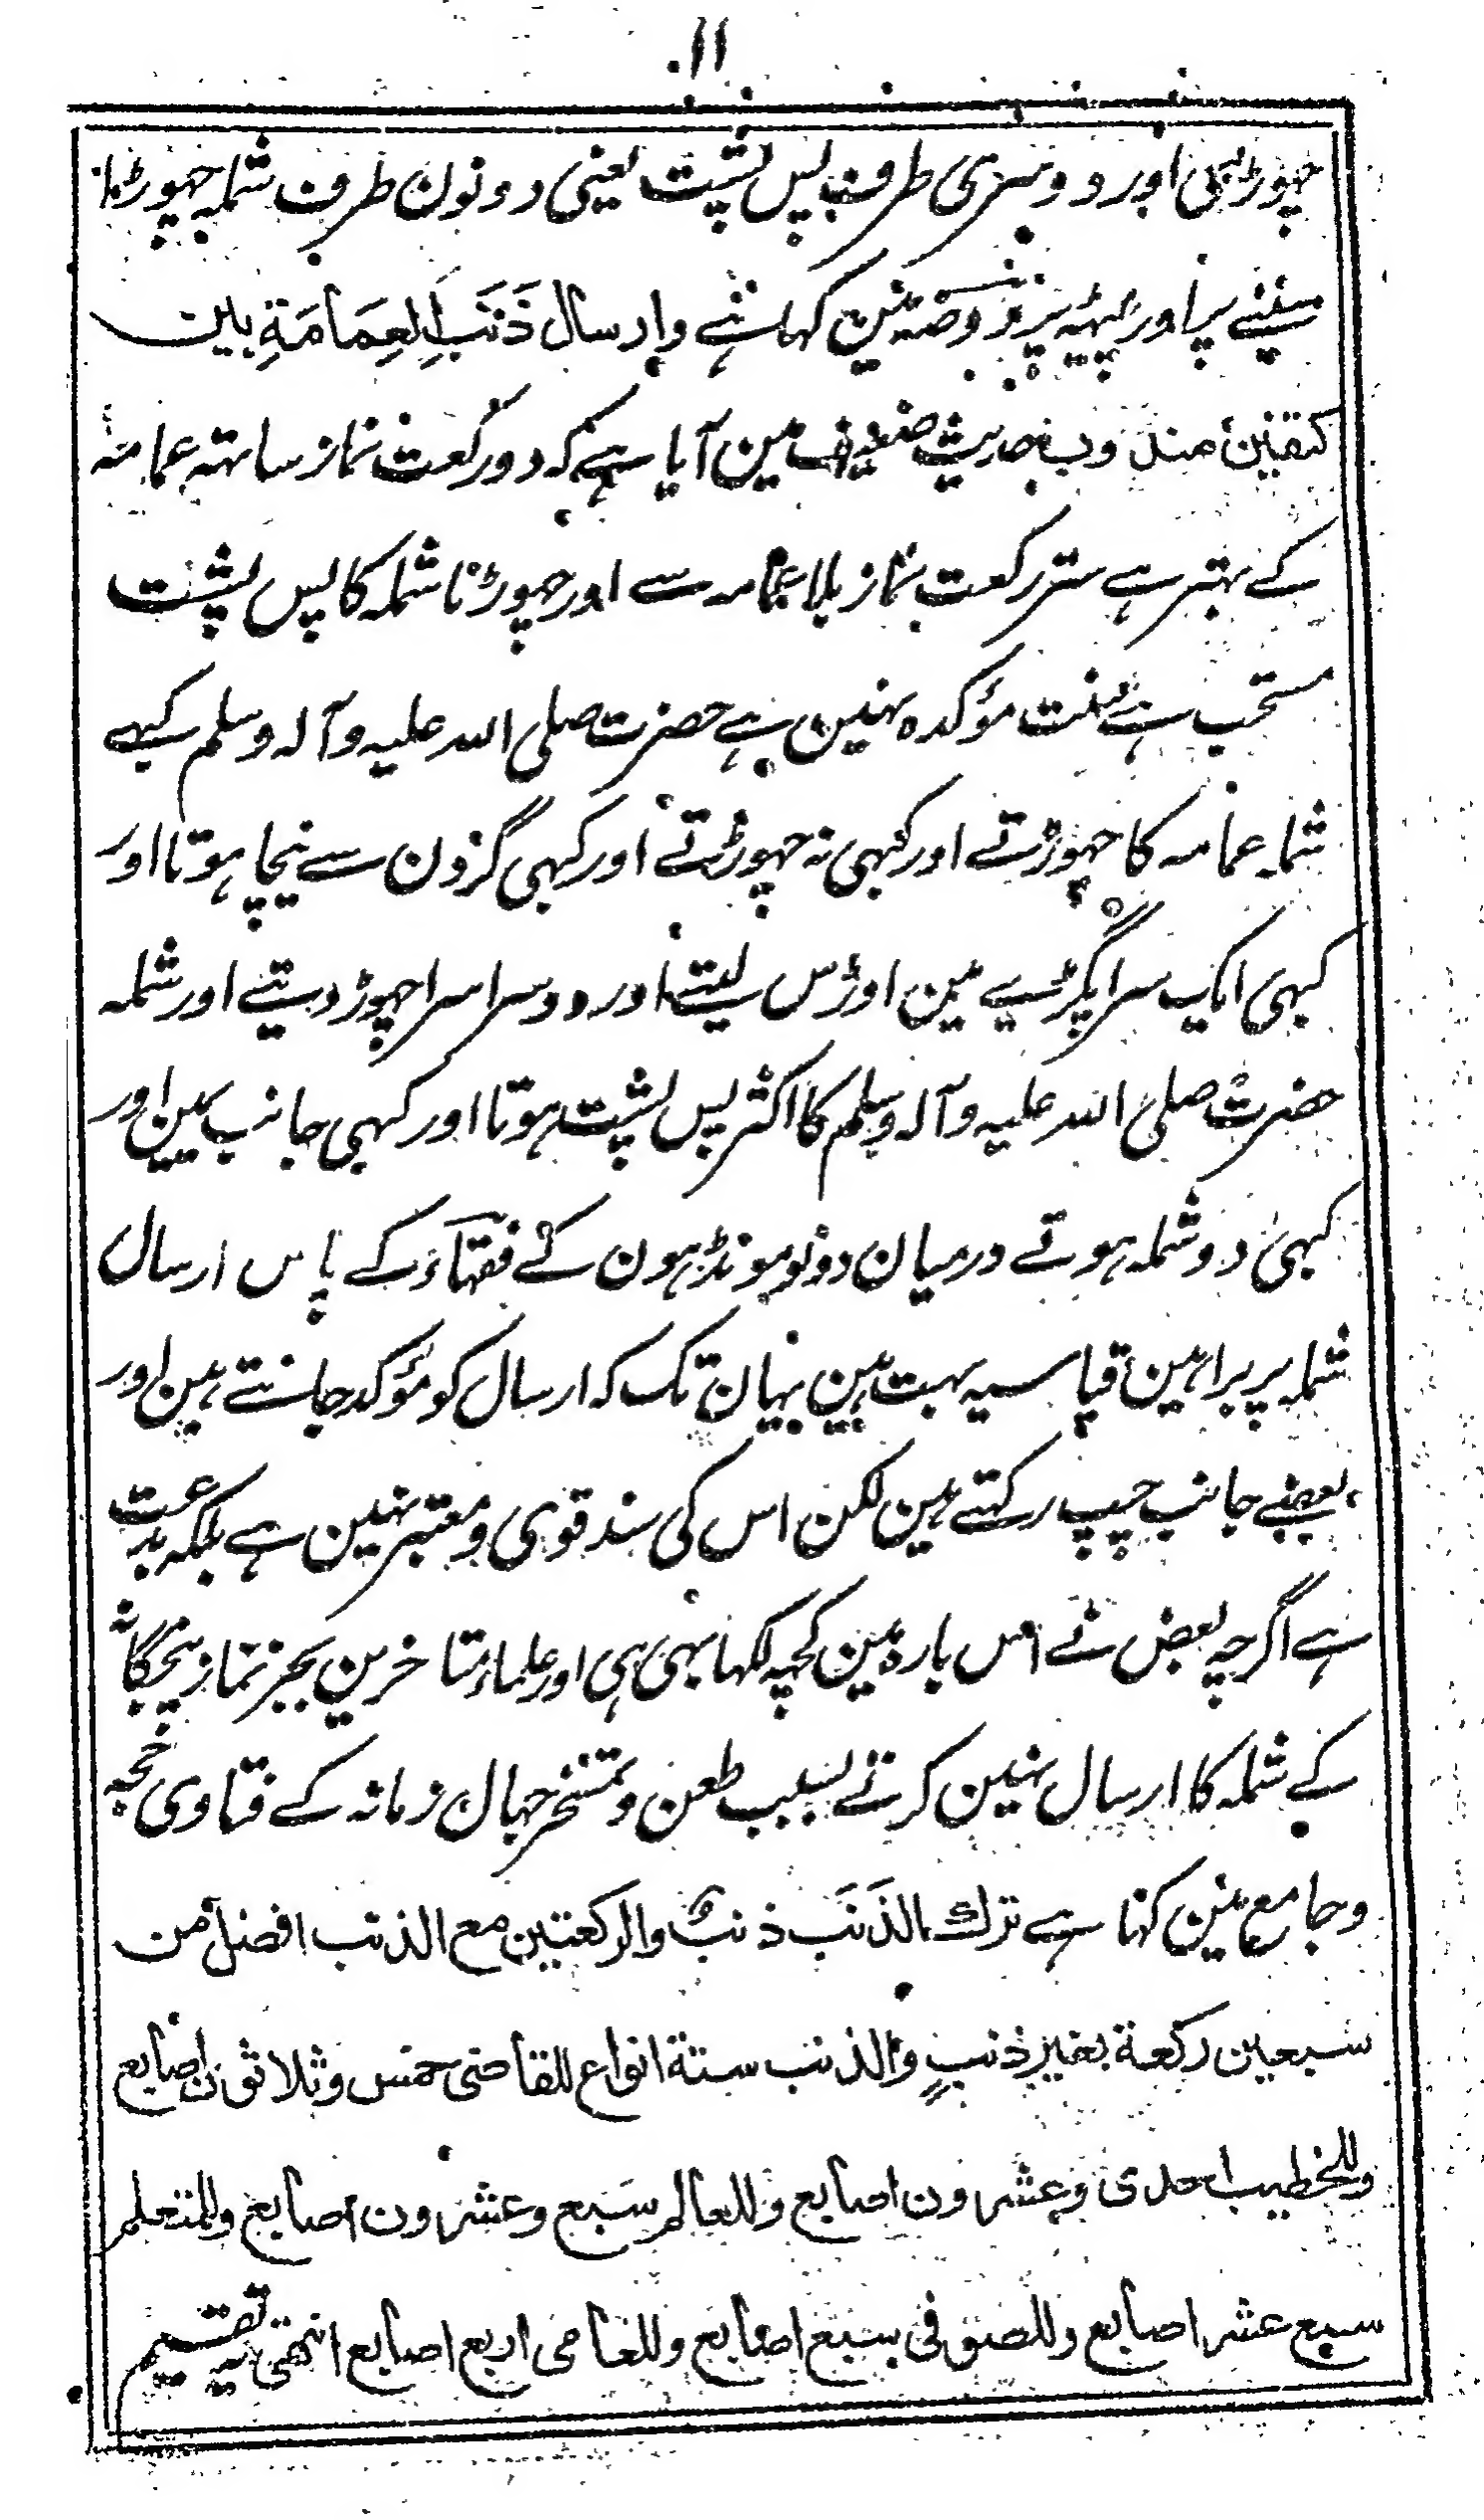 ۱۱
چہوڑتی اور دوسری طرف پس پشت یعنی دونون طرف شملہ چہوڑنا
سینے پر اور پیٹہہ پر روضہ مین کہا ہے وارسال ذَنَبِ العِمَامَةِ بین
کتفین مندوب حدیث ضعیف مین آیا ہے کہ دو رکعت نماز ساتہہ عمامہ
کے بہتر ہے ستر رکعت نماز بلا عمامہ سے اور چہوڑنا شملہ کا پس پشت
مستحب ہے سنت مؤکدہ نہین ہے حضرت صلی اللہ علیہ وآلہ وسلم کبہے
شملہ عمامہ کا چہوڑتے اور کبہی نہ چہوڑتے اور کبہی گردن سے نیچا ہوتا اور
کبہی ایک سرا پگڑیے مین اوڑس لیتے اور دوسرا سرا چہوڑ دیتے اور شملہ
حضرت صلی اللہ علیہ وآلہ وسلم کا اکثر پس پشت ہوتا اور کبہی جانب یمین اور
کبہی دو شملہ ہوتے درمیان دونو مونڈہون کے فقہاء کے پاس ارسال
شملہ پر براہین قیاسیہ بہت ہین یہان تک کہ ارسال کو مؤکد جانتے ہین اور
بعضے جانب چپ رکہتے ہین لکن اس کی سند قوی و معتبر نہین ہے بلکہ بدعت
ہے اگرچہ بعض نے اس بارہ مین کچہہ لکہا بہی ہی اور علماء متاخرین بجز نماز پنجگانہ
کے شملہ کا ارسال نہین کرتے بسبب طعن و تمسخر جہال زمانہ کے فتاوی حجہ
وجامع مین کہا ہے ترك الذَنَب ذنبٌ والركعتين مع الذنب افضل من
سبعين ركعة بغير ذنبٍ والذنب ستة انواع للقاضى خمس وثلاثون اصابع
وللخطيب احدى وعشرون اصابع وللعالم سبع وعشرون اصابع وللمتعلم
سبع عشر اصابع وللصوفى سبع اصابع وللعامى اربع اصابع انتهى یہ تقسیم